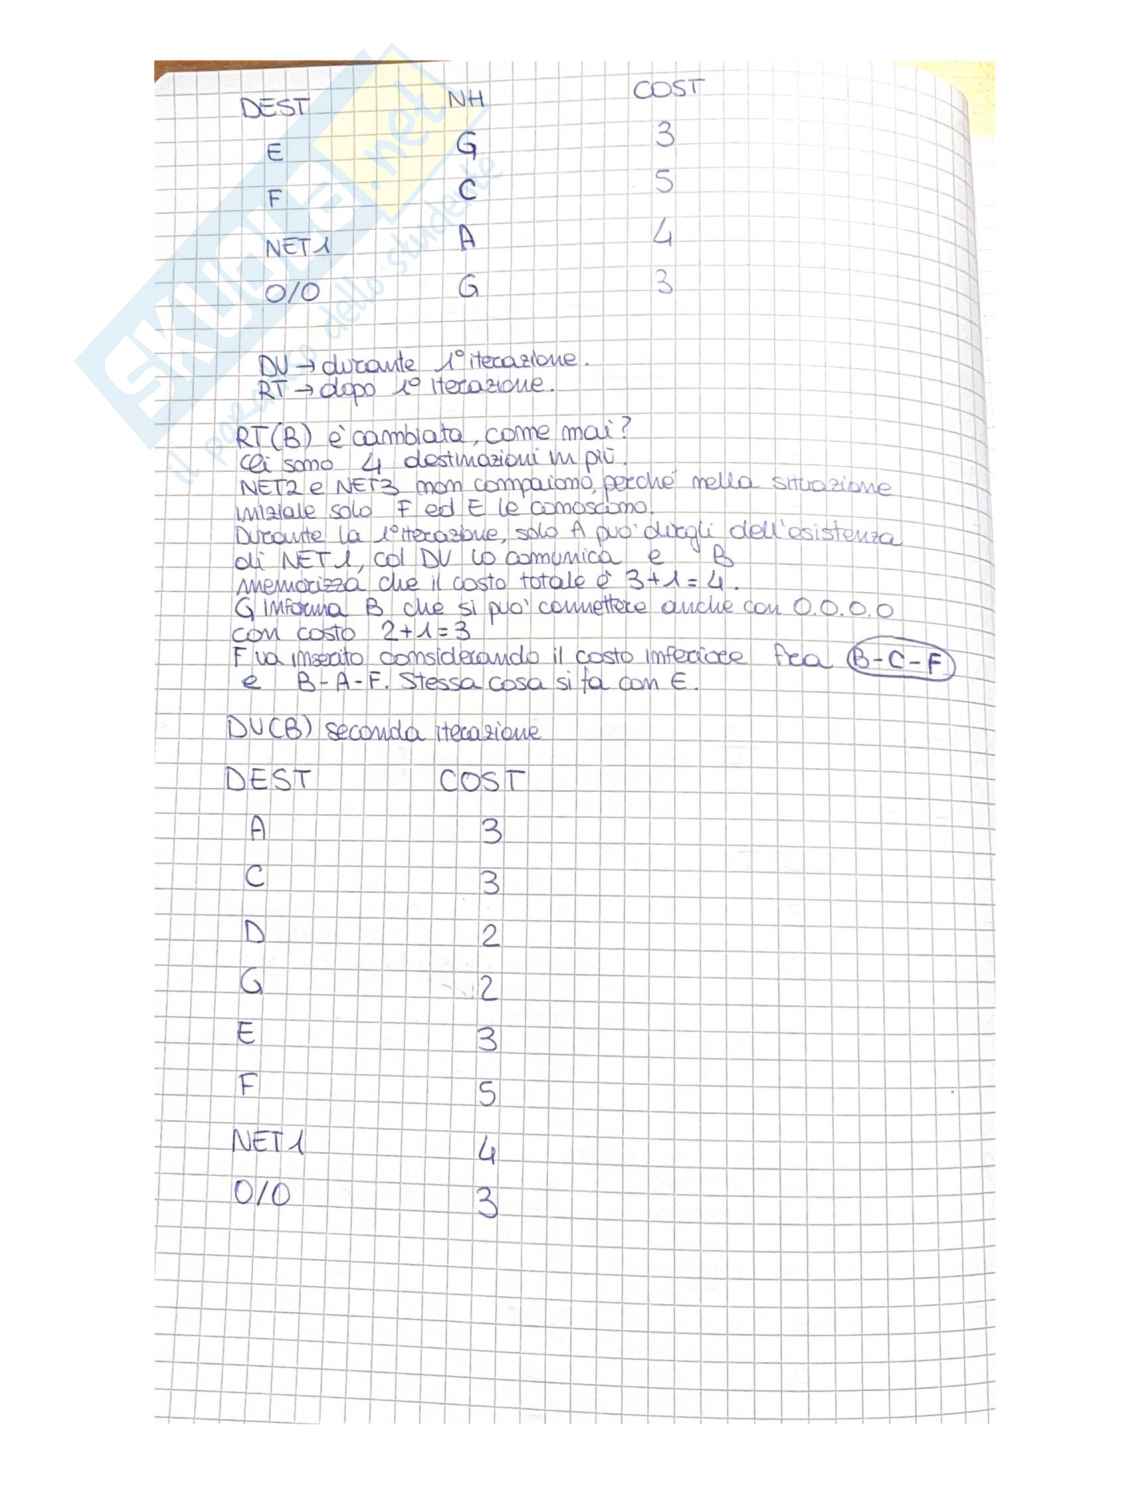 DEST NH COST
E G 3
F C 5
NET1 A 4
0/0 G 3
DV → durante 1° iterazione.
RT → dopo 1° iterazione.
RT(B) è cambiata, come mai?
Ci sono 4 destinazioni in più.
NET2 e NET3 non compaiono, perché nella situazione
iniziale solo F ed E le conoscono.
Durante la 1° iterazione, solo A può dirgli dell'esistenza
di NET1, col DV lo comunica e B
memorizza che il costo totale è 3+1=4.
G informa B che si può connettere anche con 0.0.0.0
con costo 2+1=3
F va inserito considerando il costo inferiore fra B-C-F
e B-A-F. Stessa cosa si fa con E.
DV(B) seconda iterazione
DEST COST
A 3
C 3
D 2
G 2
E 3
F 5
NET1 4
0/0 3
SKUOLA.net
il portale dello studente